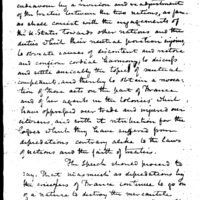 endeavour by a revision and readjustment
of the treaties between the two nations, as far
as shall consist with the engagements of
the U. States toward other nations and the
duties which their neutral position, enjoins
to remove causes of discontent and restore
and confirm cordial harmony, to discuss
and settle amicably the topics of mutual
complaint, and thereby to obtain a revocation
of those acts on the part of France
and of her agents in the Colonies which
have oppressed our trade and injured our
citizens, and with it retribution for the
losses which they have suffered from
depredations contrary alike to the laws
of nations and the faith of treaties.
The Speech should proceed to
say, that inasmuch as depredations by
the cruisers of France continue to go on
of a nature to destroy the mercantile